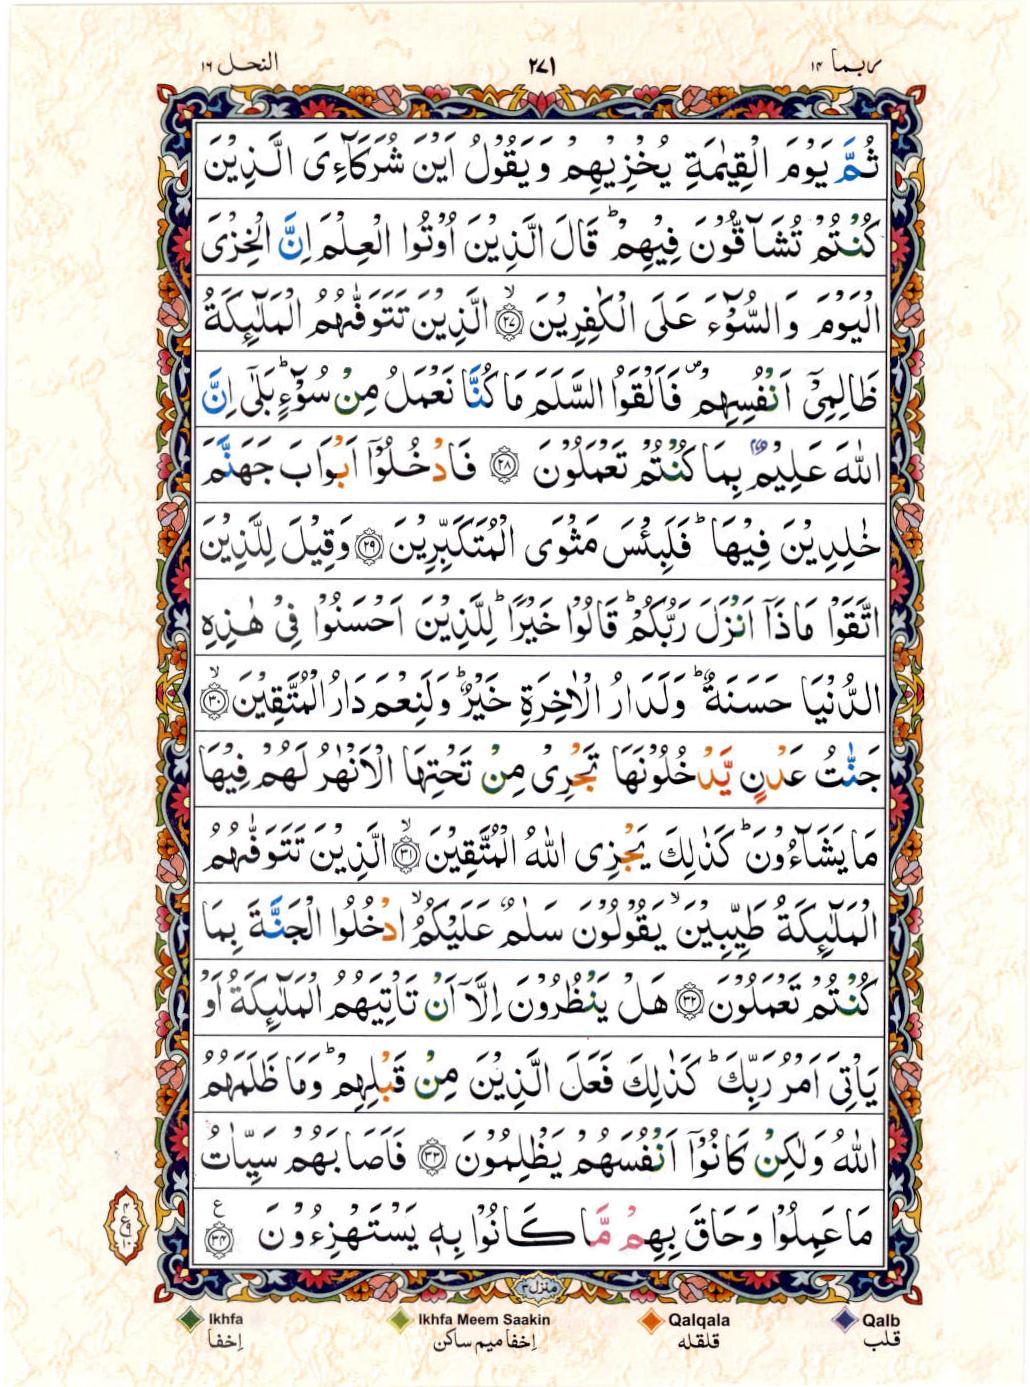 ربما ۱۴
۲۷۱
النحل ۱۶
ثُمَّ يَوْمَ الْقِيٰمَةِ يُخْزِيْهِمْ وَيَقُوْلُ اَيْنَ شُرَكَآءِىَ الَّذِيْنَ
كُنْتُمْ تُشَآقُّوْنَ فِيْهِمْ ؕ قَالَ الَّذِيْنَ اُوْتُوا الْعِلْمَ اِنَّ الْخِزْىَ
الْيَوْمَ وَالسُّوْٓءَ عَلَى الْكٰفِرِيْنَ ۙ۝۲۷ الَّذِيْنَ تَتَوَفّٰىهُمُ الْمَلٰٓئِكَةُ
ظَالِمِىْٓ اَنْفُسِهِمْ ۪ فَاَلْقَوُا السَّلَمَ مَا كُنَّا نَعْمَلُ مِنْ سُوْٓءٍ ؕ بَلٰٓى اِنَّ
اللّٰهَ عَلِيْمٌۢ بِمَا كُنْتُمْ تَعْمَلُوْنَ ۝۲۸ فَادْخُلُوْٓا اَبْوَابَ جَهَنَّمَ
خٰلِدِيْنَ فِيْهَا ؕ فَلَبِئْسَ مَثْوَى الْمُتَكَبِّرِيْنَ ۝۲۹ وَقِيْلَ لِلَّذِيْنَ
اتَّقَوْا مَاذَآ اَنْزَلَ رَبُّكُمْ ؕ قَالُوْا خَيْرًا ؕ لِلَّذِيْنَ اَحْسَنُوْا فِىْ هٰذِهِ
الدُّنْيَا حَسَنَةٌ ؕ وَلَدَارُ الْاٰخِرَةِ خَيْرٌ ؕ وَلَنِعْمَ دَارُ الْمُتَّقِيْنَ ۙ۝۳۰
جَنّٰتُ عَدْنٍ يَّدْخُلُوْنَهَا تَجْرِىْ مِنْ تَحْتِهَا الْاَنْهٰرُ لَهُمْ فِيْهَا
مَا يَشَآءُوْنَ ؕ كَذٰلِكَ يَجْزِى اللّٰهُ الْمُتَّقِيْنَ ۙ۝۳۱ الَّذِيْنَ تَتَوَفّٰىهُمُ
الْمَلٰٓئِكَةُ طَيِّبِيْنَ ۙ يَقُوْلُوْنَ سَلٰمٌ عَلَيْكُمُ ۙ ادْخُلُوا الْجَنَّةَ بِمَا
كُنْتُمْ تَعْمَلُوْنَ ۝۳۲ هَلْ يَنْظُرُوْنَ اِلَّآ اَنْ تَاْتِيَهُمُ الْمَلٰٓئِكَةُ اَوْ
يَاْتِىَ اَمْرُ رَبِّكَ ؕ كَذٰلِكَ فَعَلَ الَّذِيْنَ مِنْ قَبْلِهِمْ ؕ وَمَا ظَلَمَهُمُ
اللّٰهُ وَلٰكِنْ كَانُوْٓا اَنْفُسَهُمْ يَظْلِمُوْنَ ۝۳۳ فَاَصَابَهُمْ سَيِّاٰتُ
مَا عَمِلُوْا وَحَاقَ بِهِمْ مَّا كَانُوْا بِهٖ يَسْتَهْزِءُوْنَ ع ۝۳۴
منزل ۳
Ikhfa Ikhfa Meem Saakin Qalqala Qalb
اِخفا اِخفا میم ساکن قلقله قلب